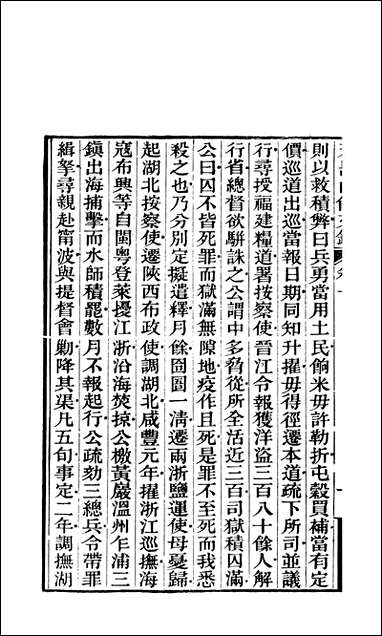 則以救積弊曰兵勇當用土民餉米毋許勒折屯穀買補當有定
價巡道出巡當報日期同知升擢毋得徑遷本道疏下所司並議
行尋授福建糧道署按察使晉江令報獲洋盜三百八十餘人解
行省總督欲駢誅之公謂中多脅從所全活近三百司獄積囚滿
公曰囚不皆死罪而獄滿無隙地疫作且死是罪不至死而我悉
殺之也乃分別定擬遣釋月餘囹圄一清遷兩浙鹽運使母憂歸
起湖北按察使遷陝西布政使調湖北咸豐元年擢浙江巡撫海
寇布興等自閩粵登萊擾江浙沿海焚掠公檄黃巖溫州乍浦三
鎮出海捕擊而水師積罷數月不報起行公疏劾三總兵令帶罪
緝拏尋親赴甯波與提督會勦降其渠凡五旬事定二年調撫湖